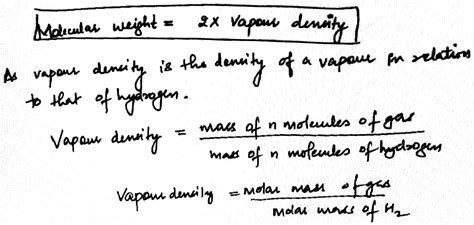 Molecular weight = 2x Vapour density
As vapour density is the density of a vapour in relation
to that of hydrogen.
Vapour density = mass of n molecules of gas / mass of n molecules of hydrogen
Vapour density = molar mass of gas / molar mass of H₂